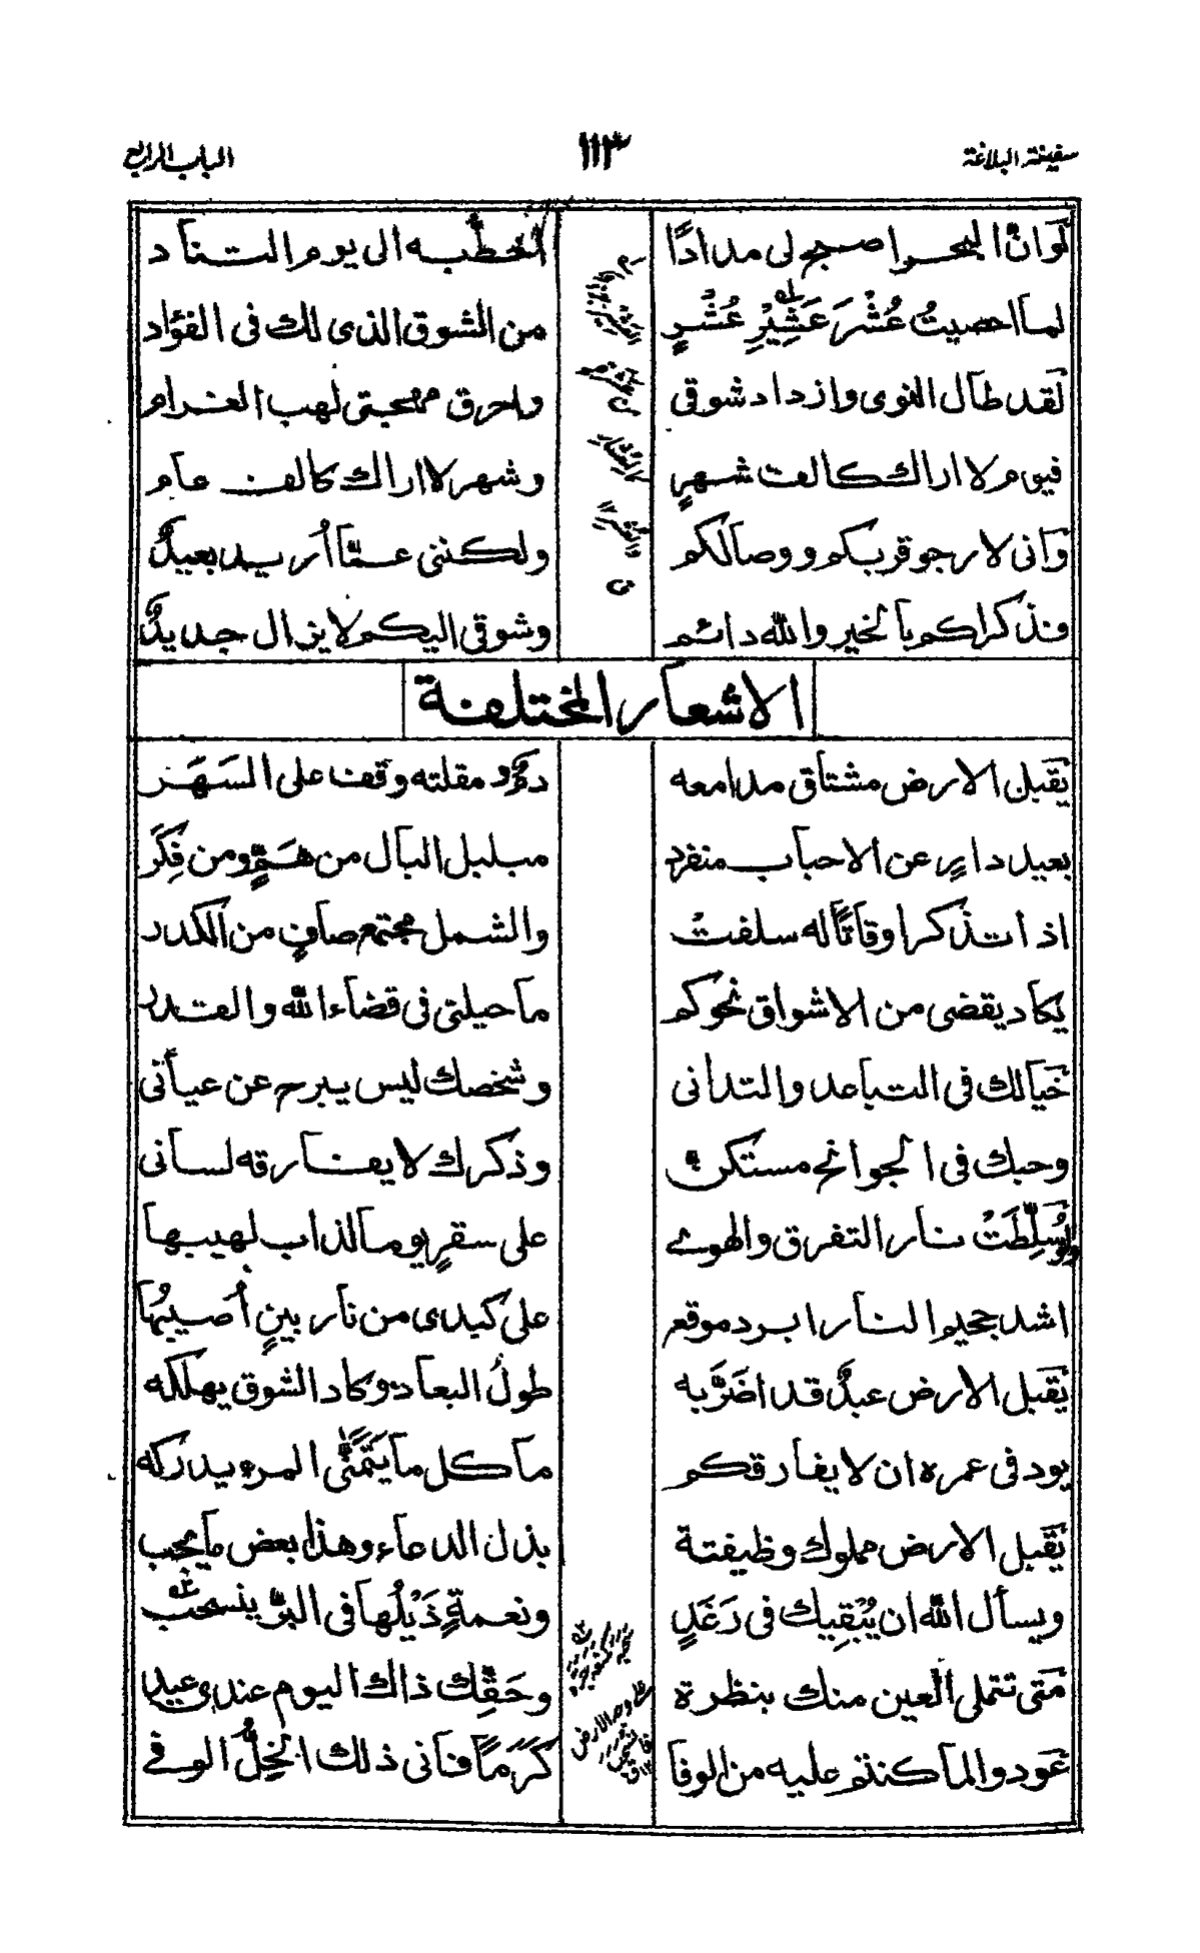 سفينة البلاغة ١١٣ الباب الرابع
لَوَانَّ البحر اصبح لى مدادًا أخطُّ به الى يوم التناد
لما احصيتُ عُشْرَ عَشِيْرِ عُشْرٍ من الشوق الذى لك فى الفؤاد
لقد طال النوى وازداد شوقى واحرق مهجتى لهب الغرام
فيوم لا اراك كالف شهرٍ وشهر لا اراك كالف عام
وانى لارجو قربكم ووصالكم ولكننى عمّا أُريد بعيدٌ
فذكراكم بالخير والله دائم وشوقى اليكم لا يزال جديدٌ
الاشعار المختلفة
يقبل الارض مشتاق مدامعه ومقلته وقف على السَهَر
بعيد دارٍ عن الاحباب منفرد مبلبل البال من هَمٍّ ومن فِكَر
اذا تذكر اوقاتًا له سلفتْ والشمل مجتمع صافٍ من الكدر
يكاد يقضى من الاشواق نحوكم ما حيلتى فى قضاء الله والقدر
خيالك فى التباعد والتدانى وشخصك ليس يبرح عن عيانى
وحبك فى الجوانح مستكن وذكرك لا يفارقه لسانى
وَلوسُلِّطَتْ نار التفرق والهوى على سقرٍ يوما لذاب لهيبها
اشد جحيم النار ابرد موقع على كبدى من نار بينٍ أُصيبُها
يقبل الارض عبدٌ قد اضَرَّ به طولُ البعاد وكاد الشوق يهلكه
يود فى عمره ان لا يفارقكم ما كل ما يَتَمَنَّى المرء يدركه
يقبل الارض مملوك وظيفتة بذل الدعاء وهذا بعض ما يجب
ويسأل الله ان يُبْقِيك فى رَغَدٍ ونعمةٍ ذَيْلُها فى البرّ ينسحب
متى تتملى العين منك بنظرة وحَقِّك ذاك اليوم عندى عيد
عودوا لما كنتم عليه من الوفا كَرَمًا فانى ذلك الخِلُّ الوفى